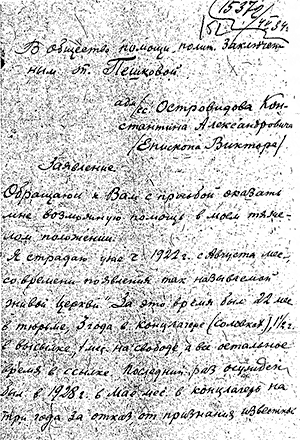 15370/44.34.
В общество помощи полит. заключен-
ным т. Пешковой
Островидова Кон-
стантина Александровича
/Епископа Виктора/
Заявление
Обращаюсь к Вам с просьбой оказать
мне возможную помощь в моем тяже-
лом положении.
Я страдаю уже с 1922 г. с Августа мес.
со времени появления так называемой
"живой церкви". За это время был 22 мес.
в тюрьме, 3 года в концлагере (Соловках), 1½ г.
в высылке, 1 мес. на свободе, а все остальное
время в ссылке. Последний раз осужден
был в 1928 г. в Мае мес. в концлагерь на
три года за отказ от признания известных